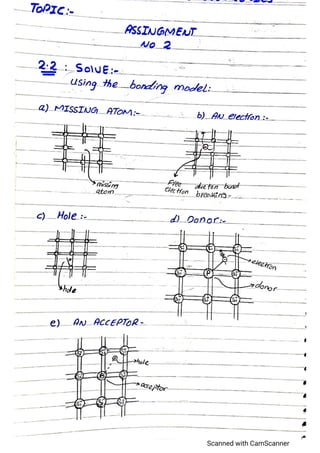 TOPIC:-
ASSIGNMENT
NO 2
2.2 : SOLVE:-
using the bonding model:
a) MISSING ATOM:-
b) AN electron:-
missing
atom
Free
electron
due to
bond
breaking-
c) Hole:-
d) Donor:-
hole
electron
donor
e) AN ACCEPTOR-
Hole
acceptor
Scanned with CamScanner